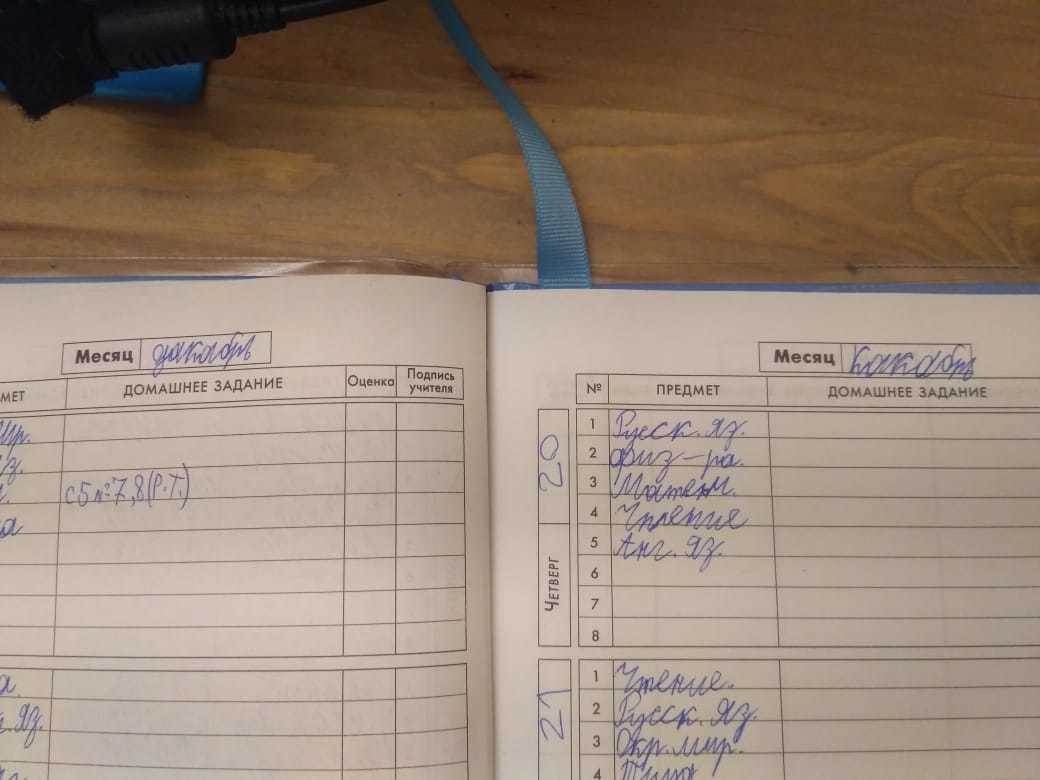 Месяц дакабрь
МЕТ ДОМАШНЕЕ ЗАДАНИЕ Оценка Подпись
учителя
ир.
с5 №7,8 (Р.Т.)
а
а.
яз.
Месяц Какабрь
№ ПРЕДМЕТ ДОМАШНЕЕ ЗАДАНИЕ
20
ЧЕТВЕРГ
1 Русск. яз.
2 Физ-ра.
3 Матем.
4 Чтение
5 Анг. яз.
6
7
8
21
1 Чтение.
2 Русск. яз.
3 Окр. мир.
4